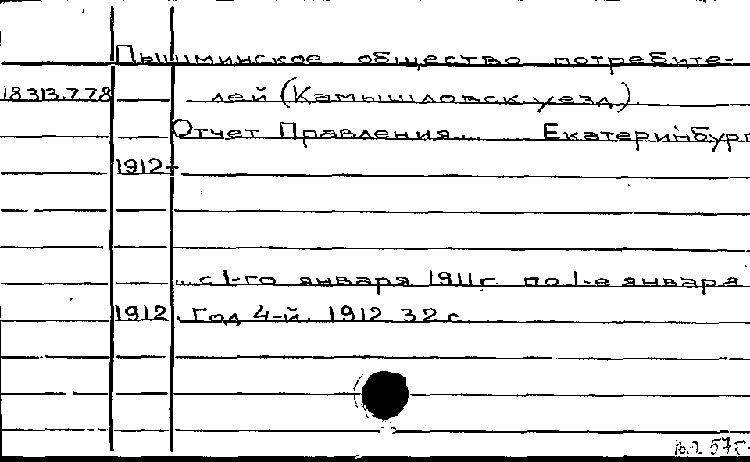 Пышминское общество потребите-
18.313.7.78 лей (Камышловск. уезд).
Отчет Правления... Екатеринбург
1912-
...с 1-го января 1911 г. по 1-е января
1912. Год 4-й. 1912. 32 с.